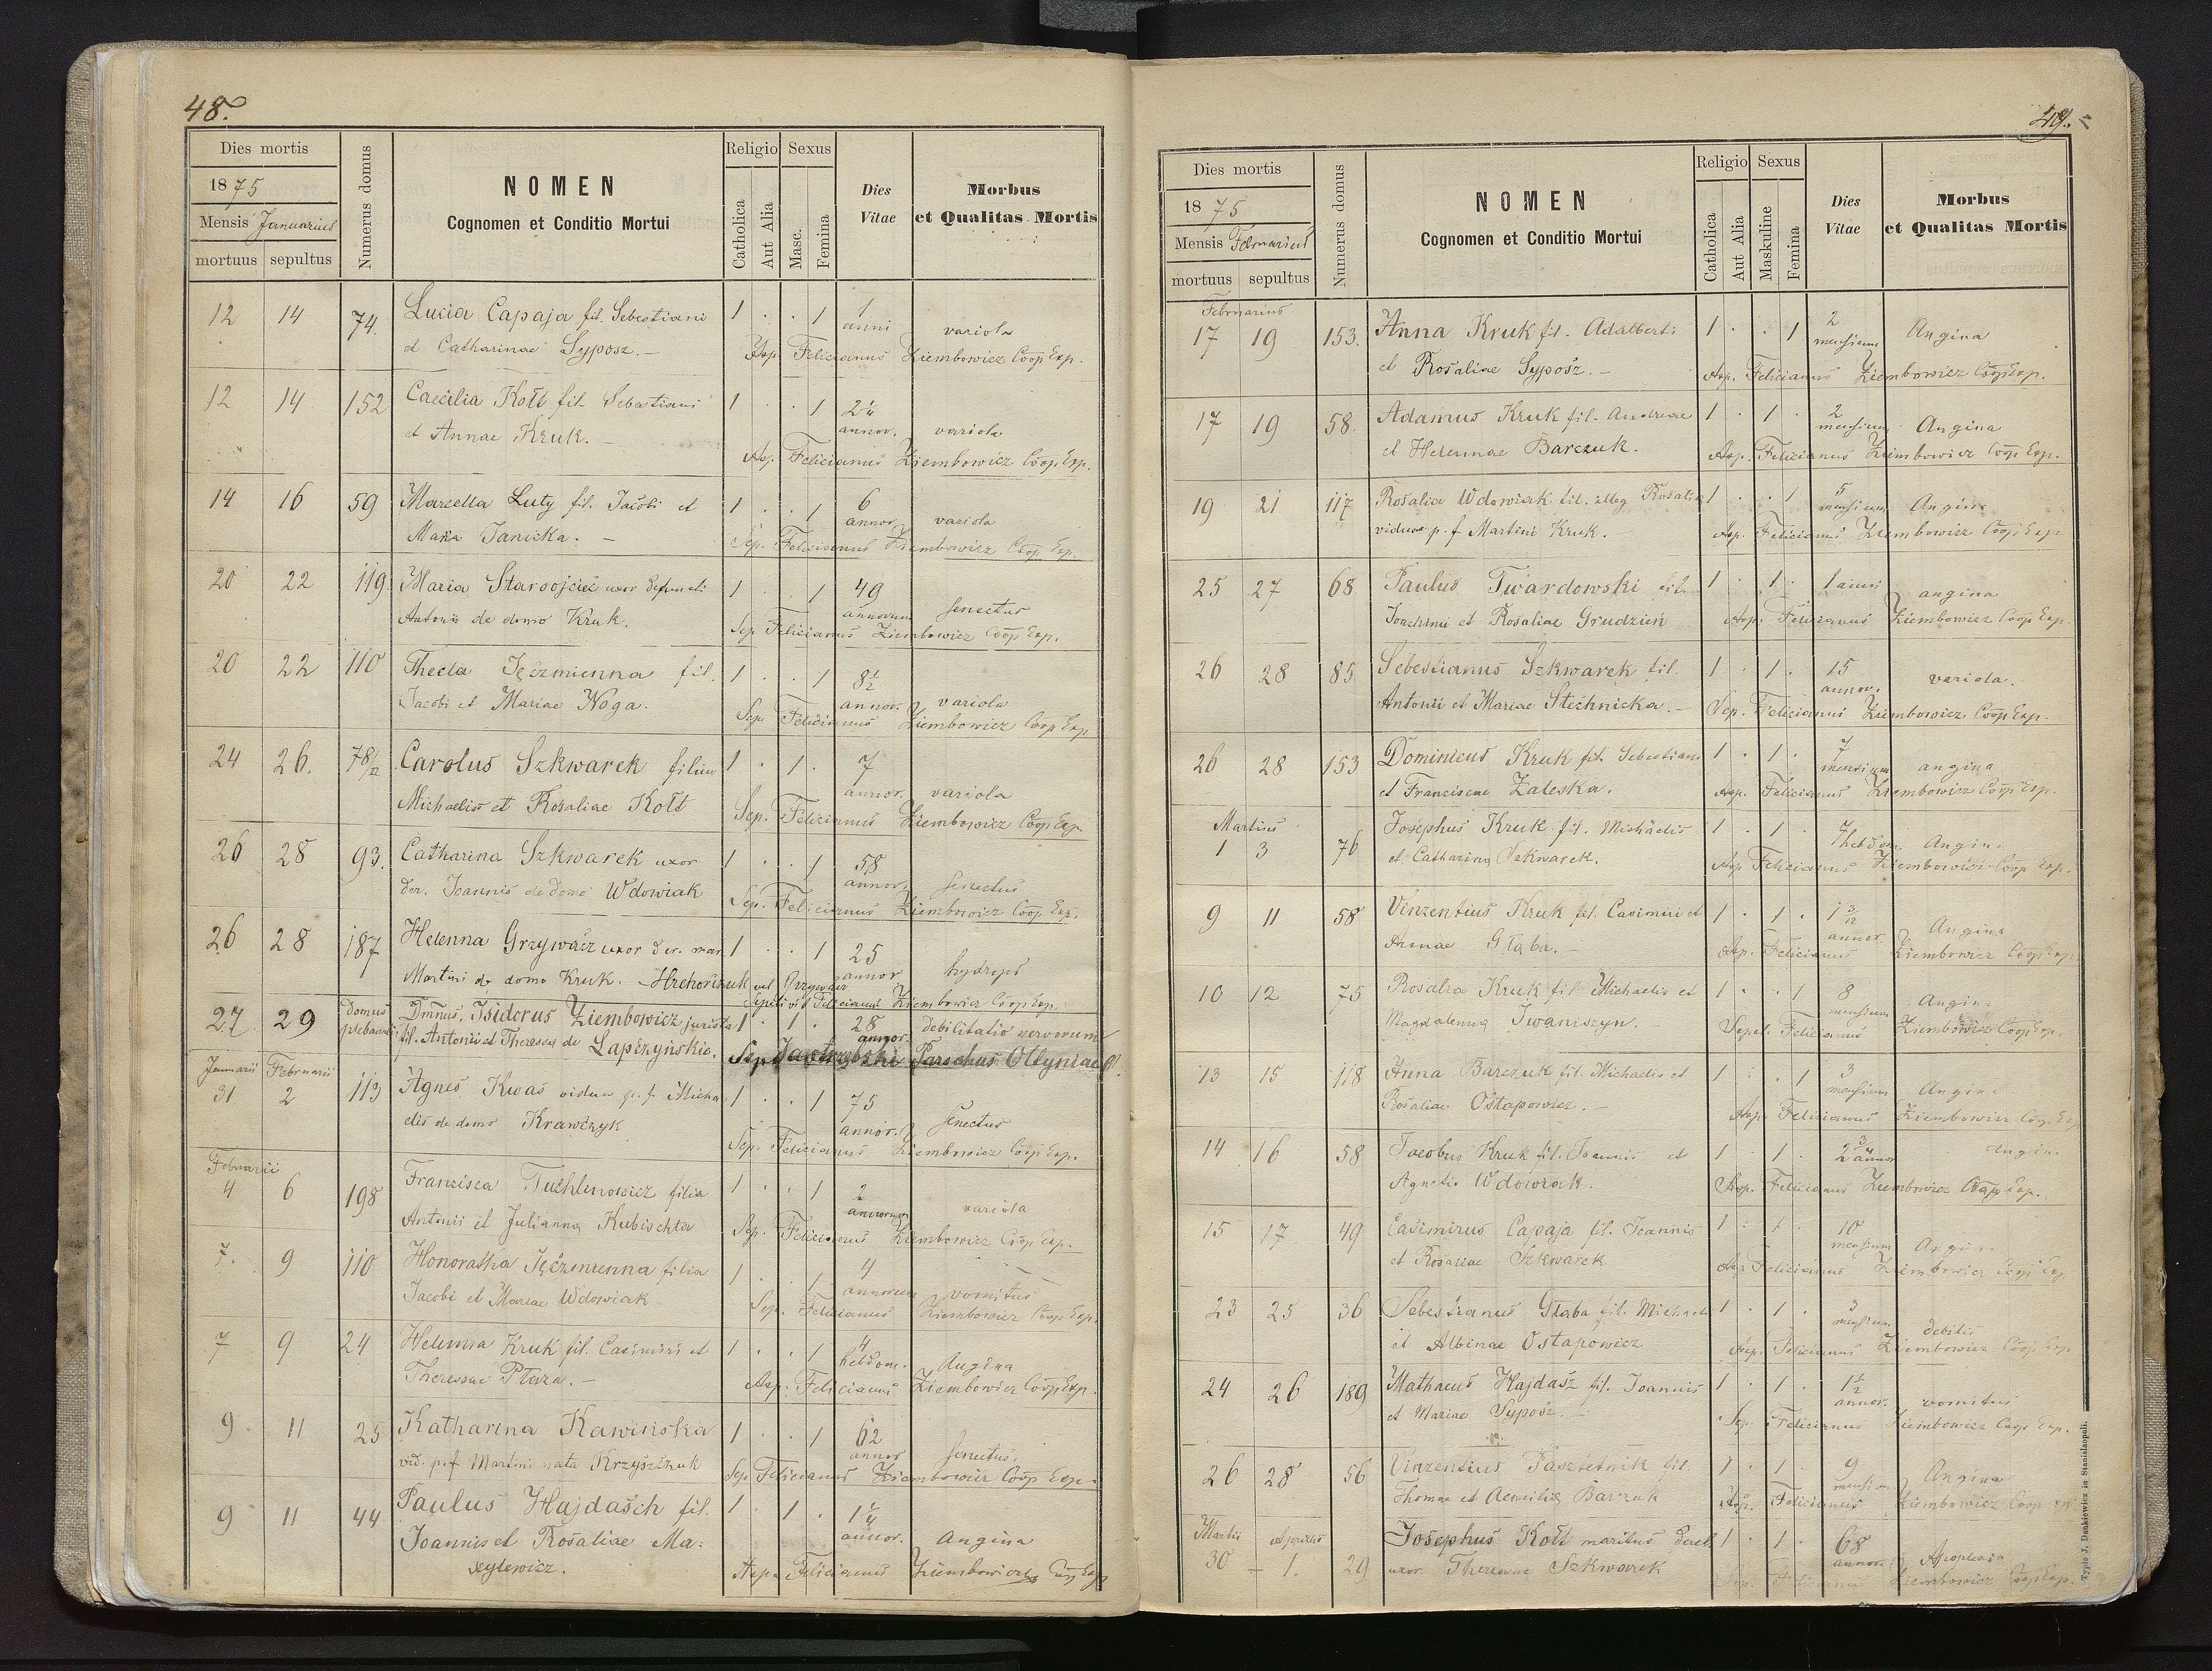 48.
Dies mortis
1875
Mensis Januarius
mortuus sepultus
Numerus domus
NOMEN
Cognomen et Conditio Mortui
Religio Sexus
Catholica
Aut Alia
Masc.
Femina
Dies
Vitae
Morbus
et Qualitas Mortis
12 14 74. Lucia Capaja fil. Sebestiani 1 . . 1 1 anni variola
et Catharinae Syposz. — Asp. Felicianus Ziembowicz Coop Exp.
12 14 152 Caecilia Kołt fil. Sebastiani 1 . . 1 2¼ annor. variola
et Annae Kruk. — Asp. Felicianus Ziembowicz Coop Exp.
14 16 59 Marcella Luty fil. Jacobi et 1 . . 1 6 annor. variola
Maria Janicka. — Sep. Felicianus Ziembowicz Coop Exp.
20 22 119 Maria Starojciec uxor defuncti 1 . . 1 49 annorum senectus
Antonii de domo Kruk. Sep Felicianus Ziembowicz Coop Exp.
20 22 110 Thecla Jęczmienna fil. 1 . . 1 8½ annor. variola
Jacobi et Mariae Noga. Sep Felicianus Ziembowicz Coop Exp
24 26. 78/II Carolus Szkwarek filius 1 . 1 . 7 annor. variola
Michaelis et Rosaliae Kołt Sep. Felicianus Ziembowicz Coop Exp.
26 28 93. Catharina Szkwarek uxor 1 . . 1 58 annor. senectus
der. Joannis de domo Wdowiak Sep. Felicianus Ziembowicz Coop Exp.
26 28 187 Helenna Grzywacz uxor der. mar. 1 . . 1 25 annor hydrops
Martini de domo Kruk. — Hrehorczuk vel Grzywacz
Sepelivit Felicianus Ziembowicz Coop Exp.
27 29 Domus plebanalis Dmnus. Isidorus Ziembowicz jurista 1 . 1 . 28 annor. debilitatio nervorum
fil. Antonii et Theressa de Lapczyńskie. Sep. Jastrzębski Parochus Ottyniae
Januarii Februarii
31 2 113 Agnes Kwas vidua p. f. Micha 1 . . 1 75 annor. senectus
elis de domo Krawczyk Sep. Felicianus Ziembowicz Coop Exp.
Februarii
4 6 198 Francisca Tuchlinowicz filia 1 . . 1 2 annorum variola
Antonii et Julianna Kubischta Sep. Felicianus Ziembowicz Coop Exp.
7. 9 110 Honoratha Jęczmienna filia 1 . . 1 4 annorum vomitus
Jacobi et Mariae Wdowiak Sep. Felicianus Ziembowicz Coop Exp.
7 9 24 Helenna Kruk fil. Casimiri et 1 . . 1 4 hebdom. Angina
Theressae Płaza. — Asp. Felicianus Ziembowicz Coop Exp.
9 11 25 Katharina Kawińska 1 . . 1 62 annor senectus.
vid. p.f Martini nata Krzyszczuk Sep Felicianus Ziembowicz Coop Exp.
9 11 44 Paulus Hajdasch fil. 1 . 1 . 1¼ annor. Angina
Joannis et Rosaliae Ma:
xylewicz. Asp. Felicianus Ziembowicz Coop Exp
49.
Dies mortis
1875
Mensis Februarius
mortuus sepultus
Numerus domus
NOMEN
Cognomen et Conditio Mortui
Religio Sexus
Catholica
Aut Alia
Maskuline
Femina
Dies
Vitae
Morbus
et Qualitas Mortis
Februarius
17 19 153. Anna Kruk fil. Adalberti 1 . . 1 2 mensium Angina
et Rosaliae Syposz. — Asp. Felicianus Ziembowicz Coop Exp.
17 19 58. Adamus Kruk fil. Andreae 1 . 1 . 2 mensium Angina
et Helennae Barczuk. Asp. Felicianus Ziembowicz Coop Exp.
19 21 117 Rosalia Wdowiak fil. illeg Rosalia 1 . . 1 5 mensium Angina
viduae p. f Martini Kruk. — Asp. Felicianus Ziembowicz Coop Exp
25 27 68 Paulus Twardowski fil. 1 . 1 . 1 anni angina
Joachimi et Rosaliae Grudzien Asp. Felicianus Ziembowicz Coop Exp.
26 28 85 Sebestianus Szkwarek fil. 1 . 1 . 15 annor. variola.
Antonii et Mariae Stechnicka. — Sep. Felicianus Ziembowicz Coop Exp.
26 28 153 Dominicus Kruk fil. Sebestiani 1 . 1 . 7 mensium angina
et Franciscae Zaleska. Asp. Felicianus Ziembowicz Coop Exp.
Martius
1 3 76 Josephus Kruk fil. Michaelis 1 . 1 . 7 hebdom. Angina
et Catharina Szkwarek. Asp Felicianus Ziembowicz Coop Exp.
9 11 58 Vinzentius Kruk fil. Casimiri et 1 . 1 . 1 3/12 annor. Angina
Annae Głąba. — Asp. Felicianus Ziembowicz Coop Exp.
10 12 75 Rosalia Kruk fil Michaelis et 1 . . 1 8 mensium Angina
Magdalenna Iwaniszyn. Sepel. Felicianus Ziembowicz Coop Exp.
13 15 118 Anna Barczuk fil. Michaelis et 1 . . 1 3 mensium Angina
Rosaliae Ostapowicz. — Asp. Felicianus Ziembowicz Coop Exp
14 16 58 Jacobus Kruk fil. Joannis et 1 . 1 . 2¾ annor Angina
Agnetis Wdowiak. Asp. Felicianus Ziembowicz Coop Exp.
15 17 49 Casimirus Capaja fil. Joannis 1 . 1 . 10 mensium Angina
et Rosaliae Szkwarek Asp Felicianus Ziembowicz Coop Exp.
23 25 36 Sebestianus Głąba fil. Michaeli 1 . 1 . 3 mensium debilis
et Albinae Ostapowicz Asp. Felicianus Ziembowicz Coop Exp
24 26 189 Mathaeus Hajdasz fil. Joannis 1 . 1 . 1½ annor. vomitus
et Mariae Syposz. — Sep. Felicianus Ziembowicz Coop Exp.
26 28 56 Vinzentius Pasztetnik fil. 1 . 1 . 9 mensium Angina
Thomae et Aemilia Barczuk Asp. Felicianus Ziembowicz Coop Exp
Martii Aprilis
30 – 1. 29 Josephus Kołt maritus derel. 1 . 1 . 68 annor. Apoplexia
uxor. Theressae Szkwarek Sep. Felicianus Ziembowicz Coop Exp.
Typis J. Dankiewicz in Stanislaopoli.